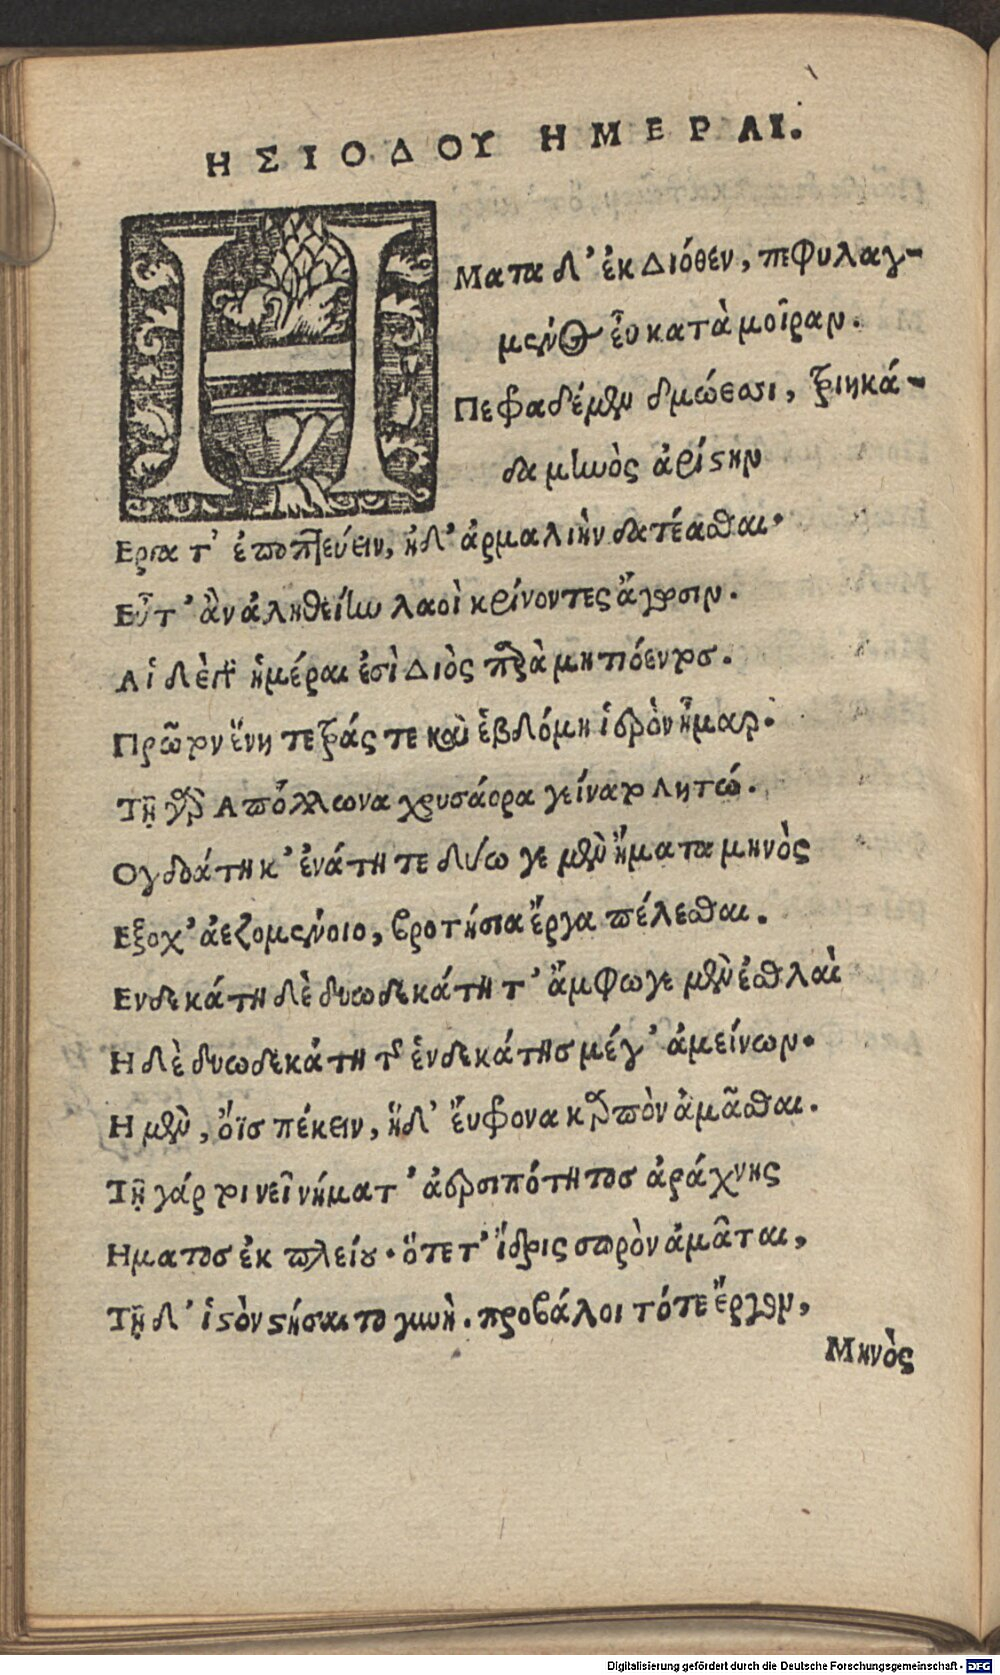 ΗΣΙΟΔΟΥ ΗΜΕΡΑΙ.
ΗΜατα δ' ἐκ Διόθεν, πεφυλαγ-
μένος εὖ κατὰ μοῖραν.
Πεφραδέμεν δμώεσσι, τριηκά-
δα μηνὸς ἀρίστην
Εργα τ' ἐποπτεύειν, ἠδ' ἁρμαλιὴν δατέασθαι.
Εὖτ' ἂν ἀληθείην λαοὶ κρίνοντες ἄγωσιν.
Αἱ δὲ γὰρ ἡμέραι ἐσὶ Διὸς παρὰ μητιόεντος.
Πρῶτον ἕνη τετράς τε καὶ ἑβδόμη ἱερὸν ἦμαρ.
Τῇ γὰρ Απόλλωνα χρυσάορα γείνατο Λητώ.
Ογδοάτη κ' ἐνάτη τε δύω γε μὲν ἤματα μηνὸς
Εξοχ' ἀεξομένοιο, βροτήσια ἔργα πέλεσθαι.
Ενδεκάτη δὲ δυωδεκάτη τ' ἄμφω γε μὲν ἐσθλαὶ
Η δὲ δυωδεκάτη τῆς ἑνδεκάτης μέγ' ἀμείνων.
Η μὲν, ὄϊς πέκειν, ἥδ' εὔφρονα καρπὸν ἀμᾶσθαι.
Τῇ γάρ τοι νεῖ νήματ' ἀερσιπότητος ἀράχνης
Ηματος ἐκ πλείου. ὅτε τ' ἴδρις σωρὸν ἀμᾶται,
Τῇ δ' ἱστὸν στήσαιτο γυνὴ. προβάλοι τότε ἔργον,
Μηνὸς
Digitalisierung gefördert durch die Deutsche Forschungsgemeinschaft - DFG